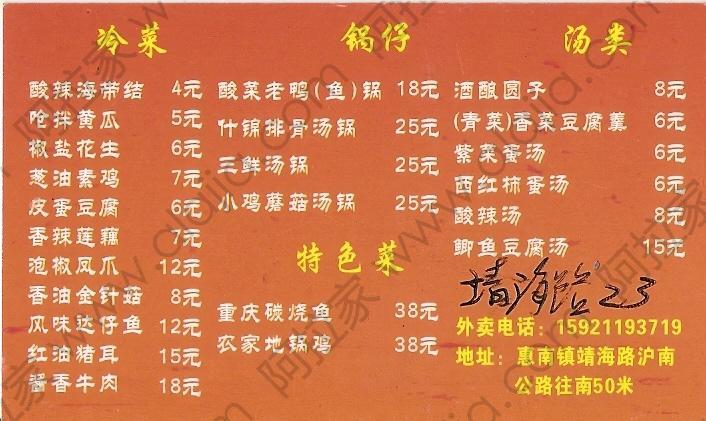 冷菜
酸辣海带结 4元
呛拌黄瓜 5元
椒盐花生 6元
葱油素鸡 7元
皮蛋豆腐 6元
香辣莲藕 7元
泡椒凤爪 12元
香油金针菇 8元
风味达仔鱼 12元
红油猪耳 15元
酱香牛肉 18元
锅仔
酸菜老鸭(鱼)锅 18元
什锦排骨汤锅 25元
三鲜汤锅 25元
小鸡蘑菇汤锅 25元
特色菜
重庆碳烧鱼 38元
农家地锅鸡 38元
汤类
酒酿圆子 8元
(青菜)香菜豆腐羹 6元
紫菜蛋汤 6元
西红柿蛋汤 6元
酸辣汤 8元
鲫鱼豆腐汤 15元
靖海路 23
外卖电话：15921193719
地址：惠南镇靖海路沪南
公路往南50米
阿拉家 www.alajia.com